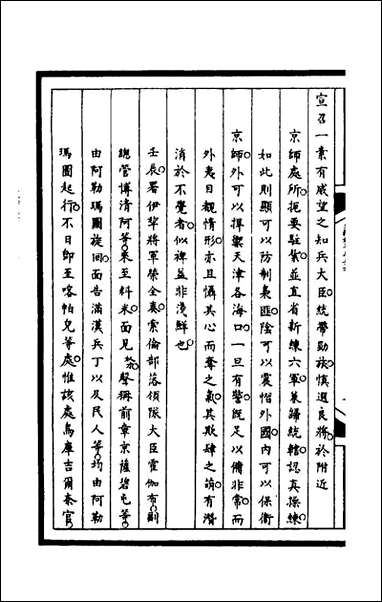 宣召一素有威望之知兵大臣統帶勁旅慎選良將於附近
京師處所扼要駐紮並直省新練六軍兼歸統轄認真操練
如此則顯可以防制梟匪陰可以震慴外國內可以保衛
京師外可以捍禦天津各海口一旦有警旣足以備非常而
外夷日覩情形亦且懾其心而奪之氣其欺肆之萌有潛
消於不覺者似裨益非淺鮮也
壬辰署伊犂將軍榮全奏索倫部落領隊大臣霍伽布副
總管博清阿等來至料米面見奴才聲稱前章京薩碧屯等
由阿勒瑪圖旋回面告滿漢兵丁以及民人等均由阿勒
瑪圖起行不日即至喀帕兒等處惟該處烏庫吉爾泰官